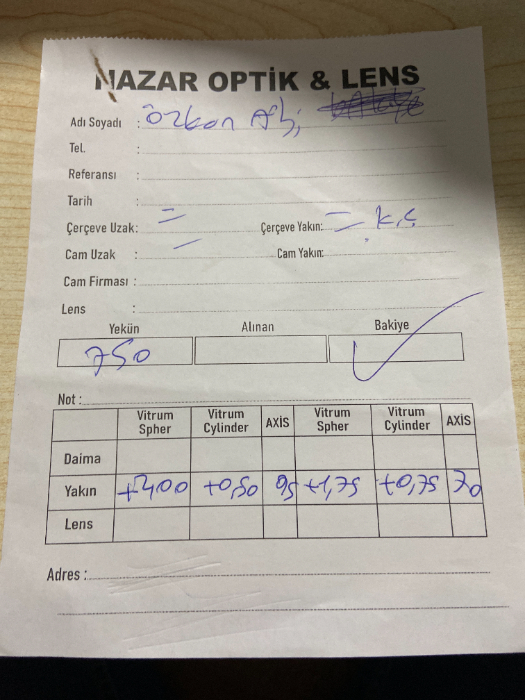 NAZAR OPTİK & LENS
Adı Soyadı : Özkan Abi
Tel. :
Referansı :
Tarih :
Çerçeve Uzak: = Çerçeve Yakın: = K.Ç
Cam Uzak : Cam Yakın:
Cam Firması :
Lens :
Yekün Alınan Bakiye
750
Not :
Vitrum Spher Vitrum Cylinder AXİS Vitrum Spher Vitrum Cylinder AXİS
Daima
Yakın +2,00 +0,50 95 +1,75 +0,75 70
Lens
Adres :